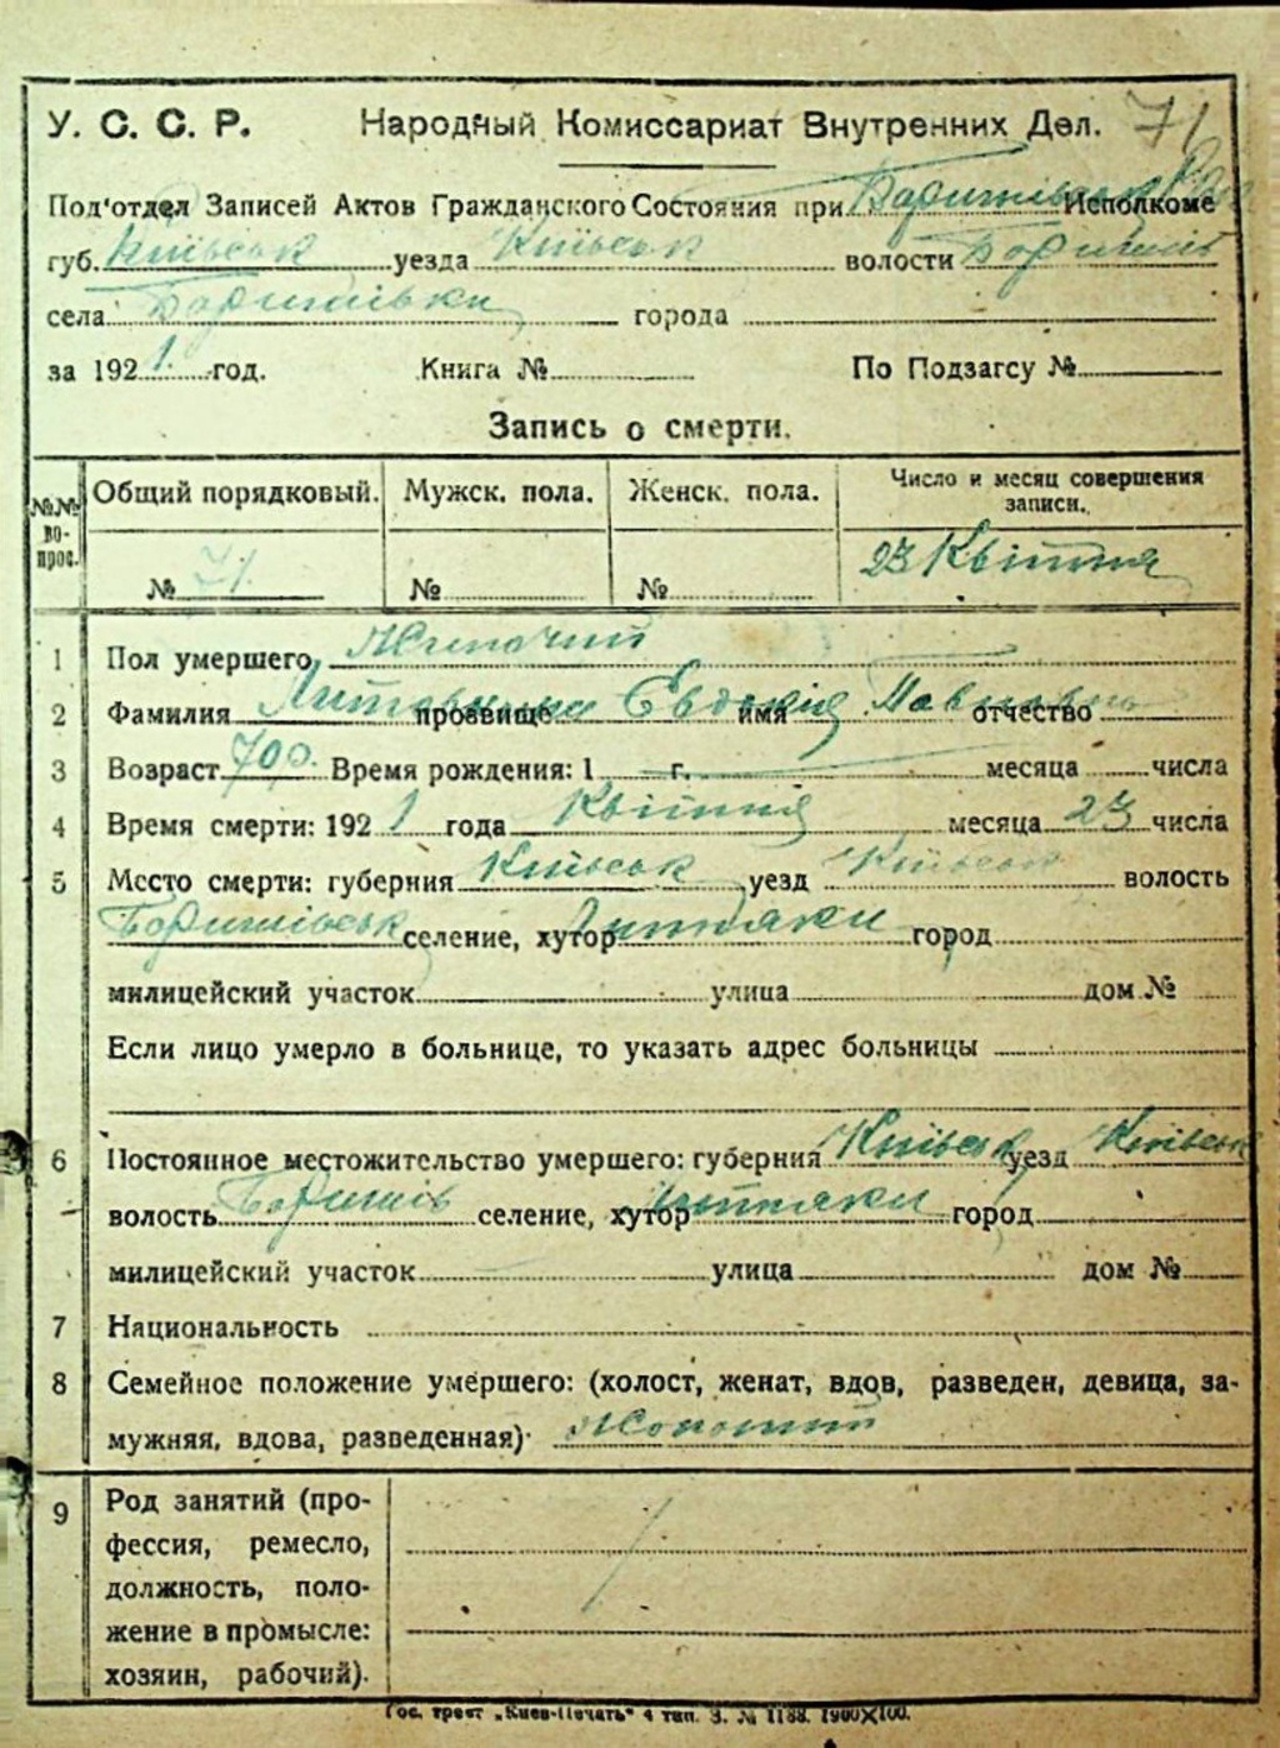 У. С. С. Р. Народный Комиссариат Внутренних Дел. 71
Под'отдел Записей Актов Гражданского Состояния при Исполкоме
губ. Київськ уезда Київськ волости
села города
за 1921. год. Книга № По Подзагсу №
Запись о смерти.
№№ во-прос. Общий порядковый. Мужск. пола. Женск. пола. Число и месяц совершения записи.
№ 71. № № 23 Квітня
1 Пол умершего, Жиночий
2 Фамилия прозвище Евдокия имя отчество
3 Возраст 70р. Время рождения: 1 г. месяца числа
4 Время смерти: 1921 года Квітня месяца 23 числа
5 Место смерти: губерния Київськ уезд Київськ волость
селение, хутор город
милицейский участок улица дом №
Если лицо умерло в больнице, то указать адрес больницы
6 Постоянное местожительство умершего: губерния Київськ уезд Київськ
волость селение, хутор город
милицейский участок улица дом №
7 Национальность
8 Семейное положение умершего: (холост, женат, вдов, разведен, девица, за-
мужняя, вдова, разведенная)
9 Род занятий (про-
фессия, ремесло,
должность, поло-
жение в промысле:
хозяин, рабочий).
Гос. трест „Киев-Печать" 4 тип. З. № 1188. 1900×100.